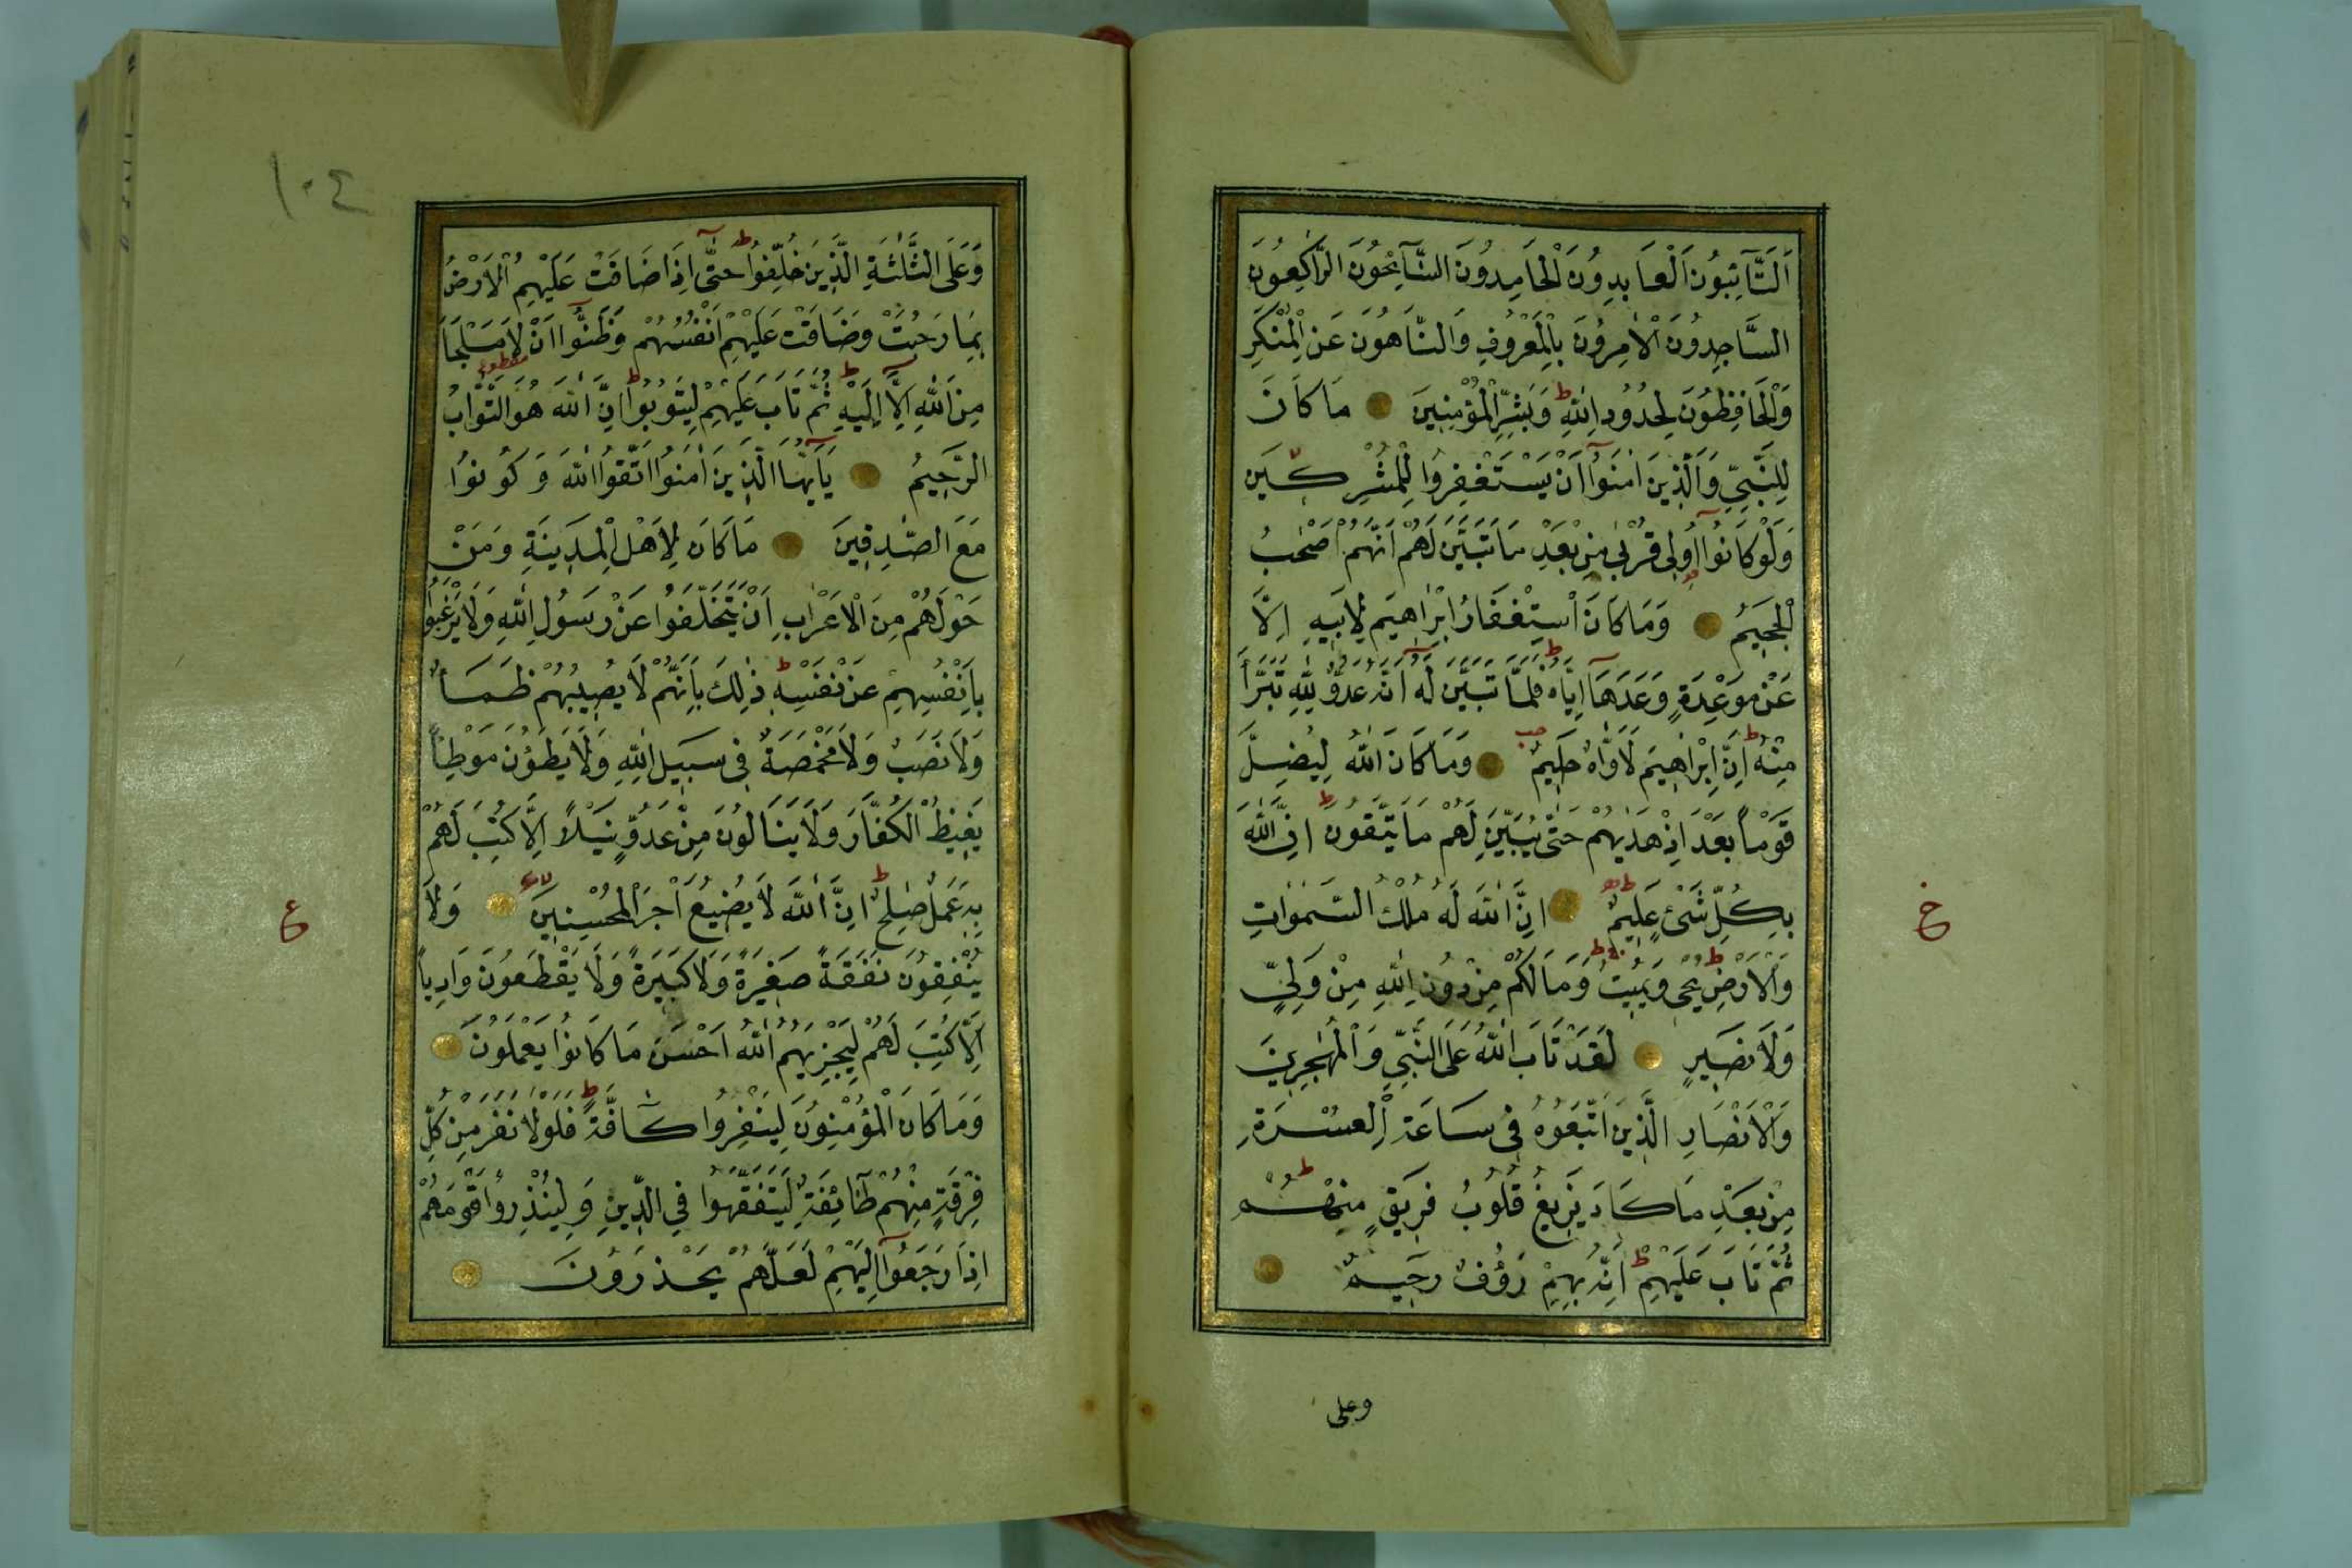 اَلتَّآئِبُونَ الْعَابِدُونَ الْحَامِدُونَ السَّآئِحُونَ الرَّاكِعُونَ
السَّاجِدُونَ الْاٰمِرُونَ بِالْمَعْرُوفِ وَالنَّاهُونَ عَنِ الْمُنْكَرِ
وَالْحَافِظُونَ لِحُدُودِ اللّٰهِ ط وَبَشِّرِ الْمُؤْمِنِينَ مَا كَانَ
لِلنَّبِيِّ وَالَّذِينَ اٰمَنُوٓا اَنْ يَسْتَغْفِرُوا لِلْمُشْرِكِينَ
وَلَوْ كَانُوٓا اُولِى قُرْبٰى مِنْ بَعْدِ مَا تَبَيَّنَ لَهُمْ اَنَّهُمْ اَصْحٰبُ
الْجَحِيمِ وَمَا كَانَ اسْتِغْفَارُ اِبْرٰاهِيمَ لِاَبِيهِ اِلَّا
عَنْ مَوْعِدَةٍ وَعَدَهَآ اِيَّاهُ ط فَلَمَّا تَبَيَّنَ لَهُٓ اَنَّهُ عَدُوٌّ لِلّٰهِ تَبَرَّاَ
مِنْهُ ط اِنَّ اِبْرٰاهِيمَ لَاَوَّاهٌ حَلِيمٌ وَمَا كَانَ اللّٰهُ لِيُضِلَّ
قَوْماً بَعْدَ اِذْ هَدٰيهُمْ حَتّٰى يُبَيِّنَ لَهُمْ مَا يَتَّقُونَ ط اِنَّ اللّٰهَ
بِكُلِّ شَىْءٍ عَلِيمٌ اِنَّ اللّٰهَ لَهُ مُلْكُ السَّمٰوَاتِ
وَالْاَرْضِ ط يُحْيِى وَيُمِيتُ ط وَمَا لَكُمْ مِنْ دُونِ اللّٰهِ مِنْ وَلِيٍّ
وَلَا نَصِيرٍ لَقَدْ تَابَ اللّٰهُ عَلَى النَّبِيِّ وَالْمُهٰجِرِينَ
وَالْاَنْصَارِ الَّذِينَ اتَّبَعُوهُ فِى سَاعَةِ الْعُسْرَةِ
مِنْ بَعْدِ مَا كَادَ يَزِيغُ قُلُوبُ فَرِيقٍ مِنْهُمْ ط
ثُمَّ تَابَ عَلَيْهِمْ ط اِنَّهُ بِهِمْ رَؤُفٌ رَحِيمٌ
وعلى
خ
١٠٤
وَعَلَى الثَّلٰثَةِ الَّذِينَ خُلِّفُوا ط حَتّٰٓى اِذَا ضَاقَتْ عَلَيْهِمُ الْاَرْضُ
بِمَا رَحُبَتْ وَضَاقَتْ عَلَيْهِمْ اَنْفُسُهُمْ وَظَنُّوٓا اَنْ لَا مَلْجَاَ
مِنَ اللّٰهِ اِلَّٓا اِلَيْهِ ط ثُمَّ تَابَ عَلَيْهِمْ لِيَتُوبُوا ط اِنَّ اللّٰهَ هُوَ التَّوَّابُ
الرَّحِيمُ يَآ اَيُّهَا الَّذِينَ اٰمَنُوا اتَّقُوا اللّٰهَ وَكُونُوا
مَعَ الصّٰدِقِينَ مَا كَانَ لِاَهْلِ الْمَدِينَةِ وَمَنْ
حَوْلَهُمْ مِنَ الْاَعْرَابِ اَنْ يَتَخَلَّفُوا عَنْ رَسُولِ اللّٰهِ وَلَا يَرْغَبُوا
بِاَنْفُسِهِمْ عَنْ نَفْسِهِ ط ذٰلِكَ بِاَنَّهُمْ لَا يُصِيبُهُمْ ظَمَأٌ
وَلَا نَصَبٌ وَلَا مَخْمَصَةٌ فِى سَبِيلِ اللّٰهِ وَلَا يَطَؤُنَ مَوْطِئاً
يَغِيظُ الْكُفَّارَ وَلَا يَنَالُونَ مِنْ عَدُوٍّ نَيْلاً اِلَّا كُتِبَ لَهُمْ
بِهِ عَمَلٌ صٰلِحٌ ط اِنَّ اللّٰهَ لَا يُضِيعُ اَجْرَ الْمُحْسِنِينَ وَلَا
يُنْفِقُونَ نَفَقَةً صَغِيرَةً وَلَا كَبِيرَةً وَلَا يَقْطَعُونَ وَادِياً
اِلَّا كُتِبَ لَهُمْ لِيَجْزِيَهُمُ اللّٰهُ اَحْسَنَ مَا كَانُوا يَعْمَلُونَ
وَمَا كَانَ الْمُؤْمِنُونَ لِيَنْفِرُوا كَآفَّةً ط فَلَوْلَا نَفَرَ مِنْ كُلِّ
فِرْقَةٍ مِنْهُمْ طَآئِفَةٌ لِيَتَفَقَّهُوا فِي الدِّينِ وَلِيُنْذِرُوا قَوْمَهُمْ
اِذَا رَجَعُوٓا اِلَيْهِمْ لَعَلَّهُمْ يَحْذَرُونَ